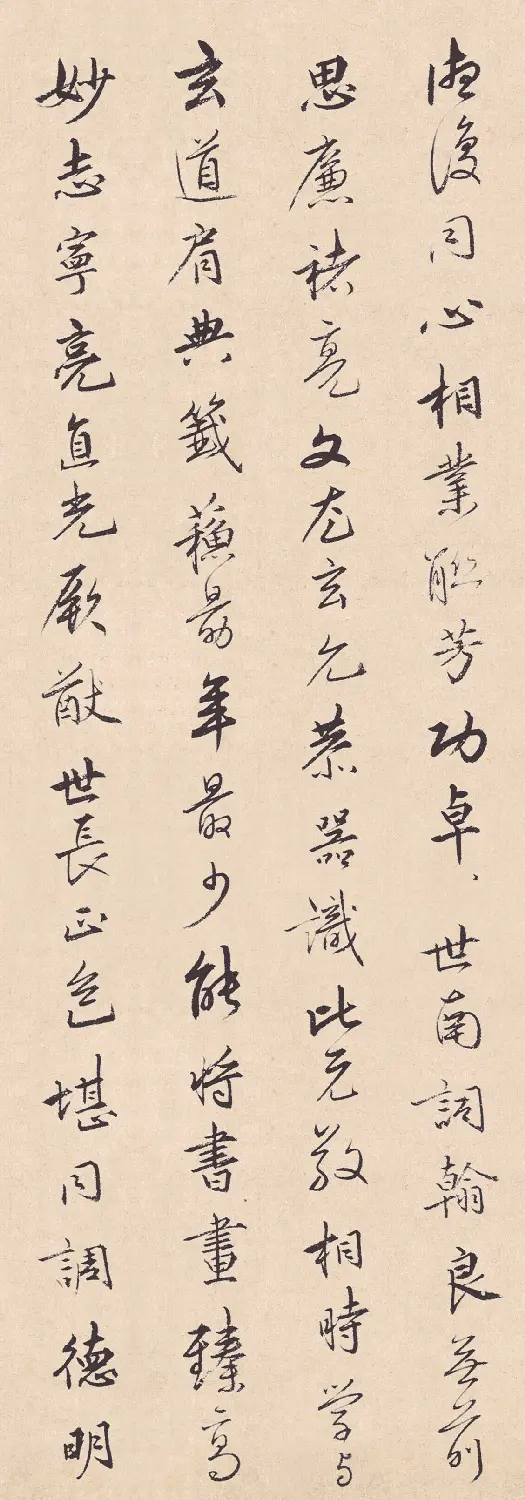 同心相業聯芳功卓、世南詞翰良無前
思廉褚亮文尤玄允恭器識比元敬相時學与
玄道肩典籤蘇勗年最少能將書畫臻高
妙志寧亮直光厥猷世長正色堪同調德明